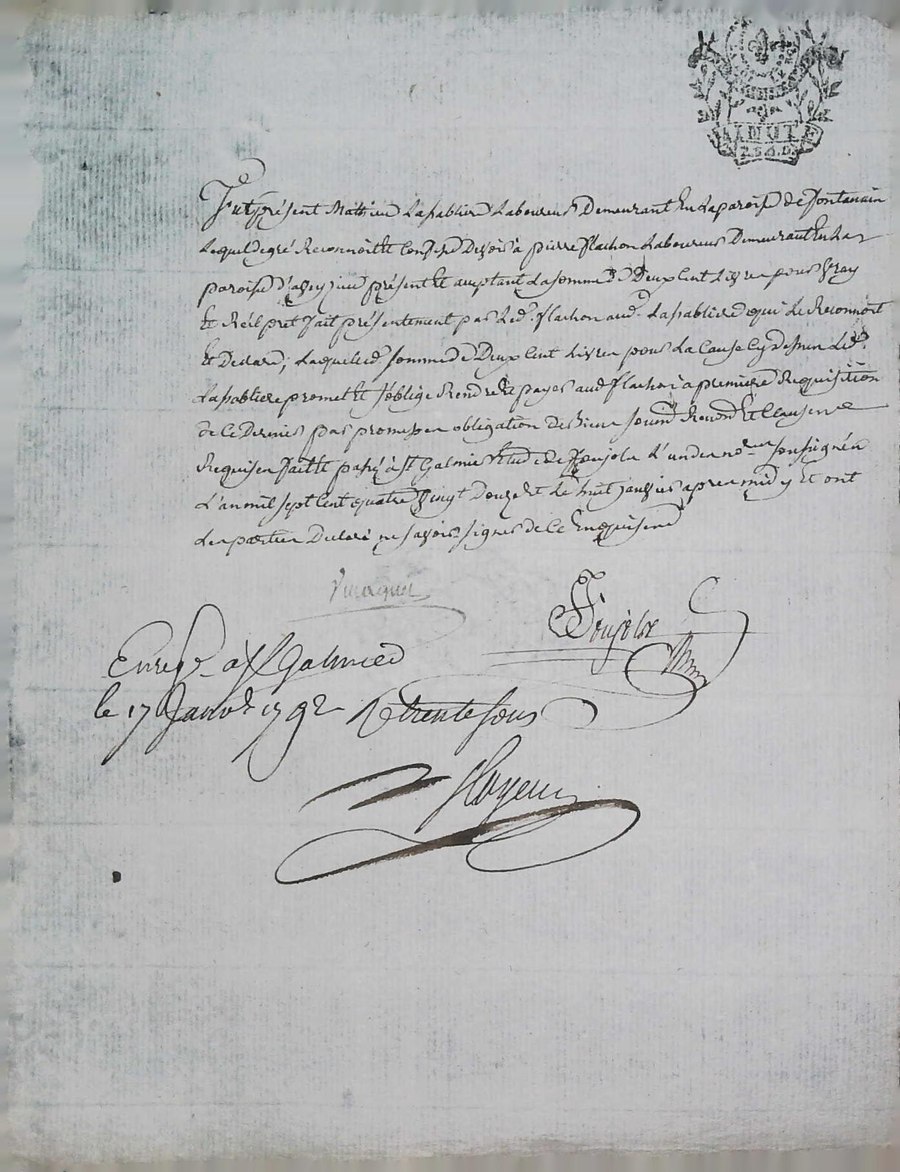 MINUTE
2 S 6 D
Fut présent Mathieu Lasablierd Laboureur Demeurant En La paroise de fontanain
Lequel de gré Reconnoit Et Confese Devoir à pierre flachon Laboureur Demeurant En La
paroise d' present Et aceptant La somme de Deux Cent Livres pour Vray
Et Réél pret fait présentement par Led. flachon aud. Lasablierd qui Le Reconnoit
Et Declare, Laquelle d. somme de Deux Cent Livres pour La Cause Cy desus Led.
Lasablierd promet Et s'oblige Rendre Et payer aud. flachon à première Requisition
de Ce Dernier par promesse obligation de Biens soumis Renond Et Clauses
Requises fait Et pasé à St Galmier Etude de foujols L'un des no.res sousignés
L'an mil sept Cent quatre Vingt Douze Et Le huit janvier apres midy Et ont
Les parties Declaré ne savoir signer de Ce Enquises
foujols
Enregé. à St Galmier
le 17 Janvr. 1792 R trente sous